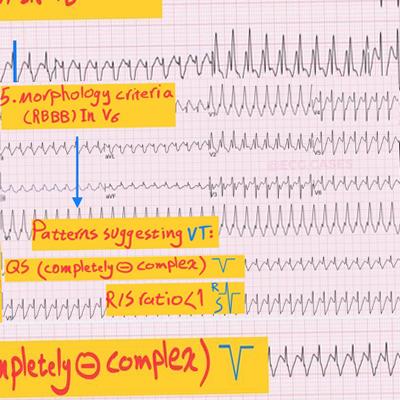 5. morphology criteria
(RBBB) In V6
aVL
V2
aVF
V3
@ECG CASES
Patterns suggesting VT:
QS (completely ⊖ complex)
R/S ratio<1 R
S
mpletely ⊖ complex)